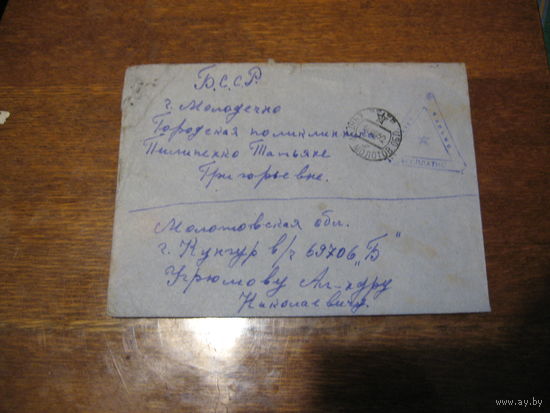 Б.С.С.Р.
г. Молодечно
Городская поликлиника
Пилипенко Татьяне
Григорьевне.
Молотовская обл.
г. Кунгур в/ч 69706 „Б"
Угрюмову Ал-ндру
Николаевичу.
МОЛОТОВ. ОБЛ.
БЕСПЛАТНО
www.ay.by